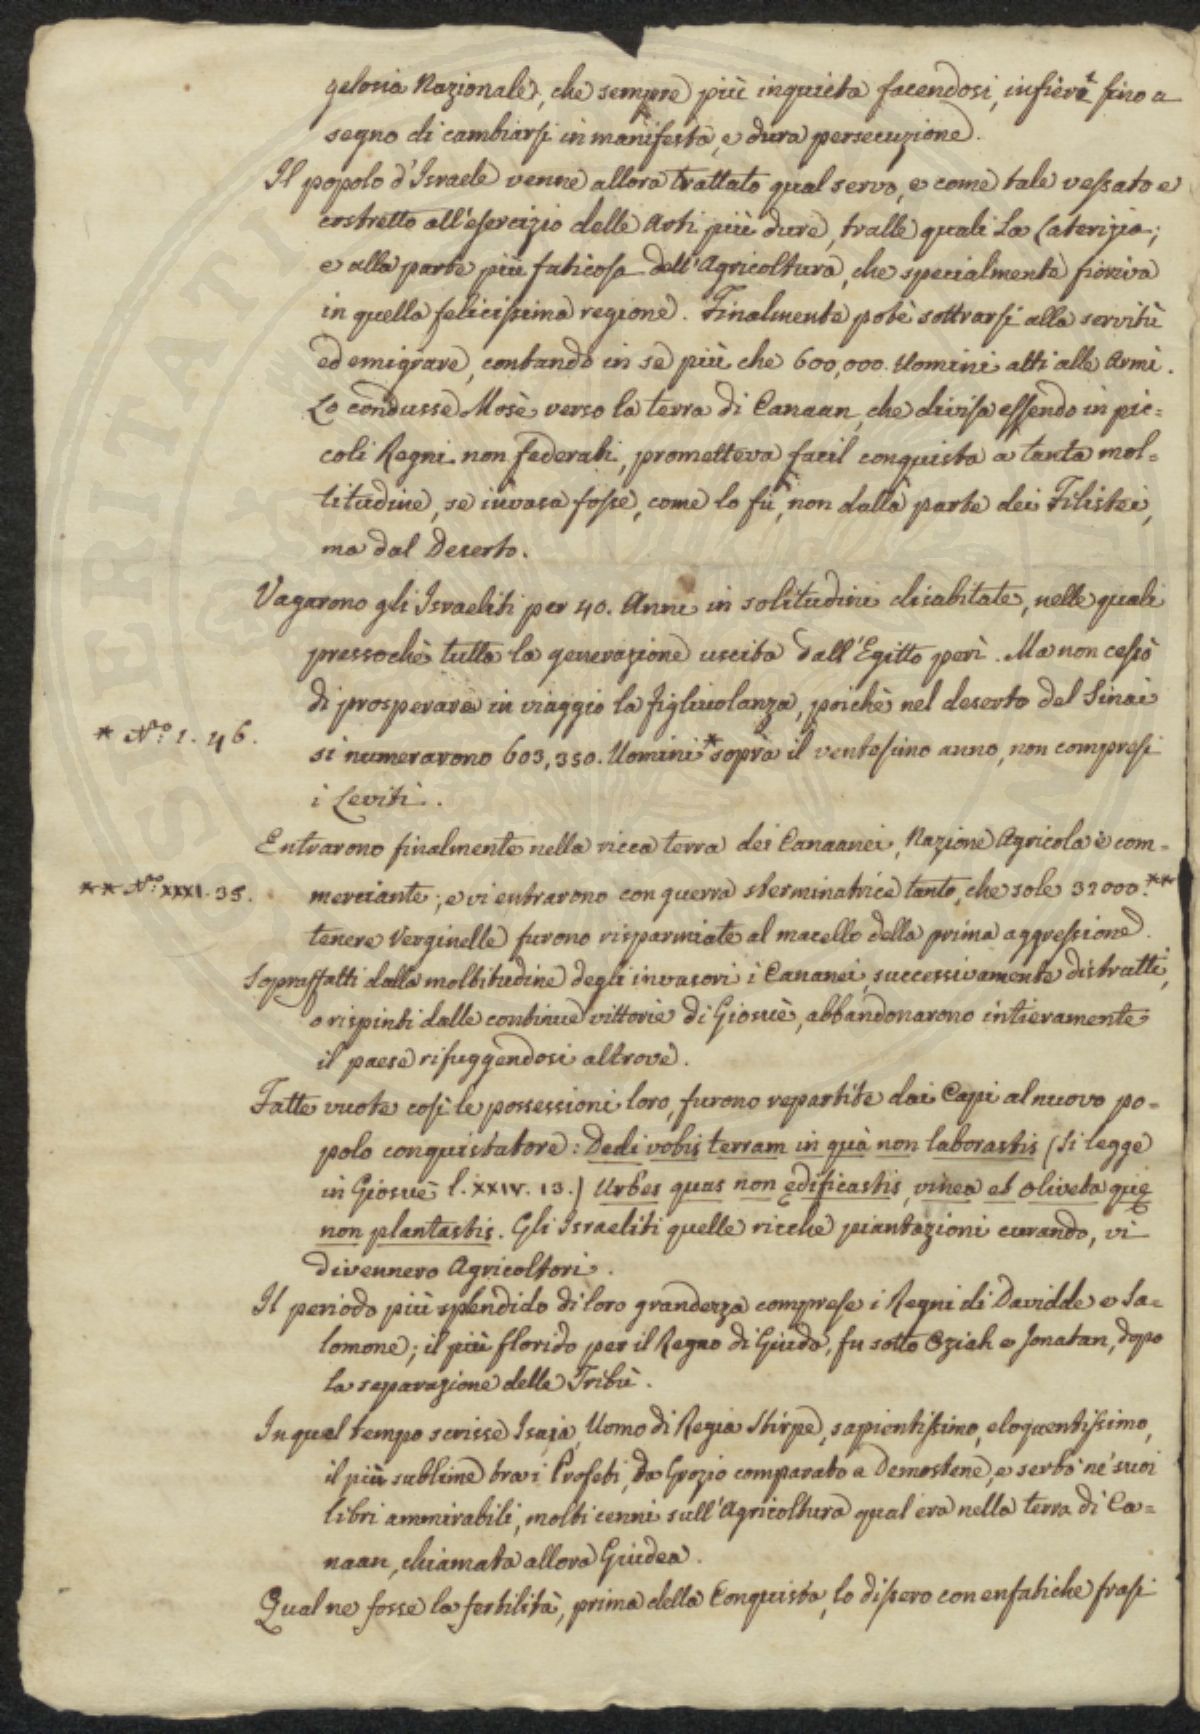 gelosia Nazionale, che sempre più inquieta facendosi, infierì fino a
segno di cambiarsi in manifesta, e dura persecuzione.
Il popolo d'Israele venne allora trattato qual servo, e come tale vessato e
costretto all'esercizio delle Arti più dure, tralle quali La Laterizia;
e alla parte più faticosa dell'Agricoltura, che specialmente fioriva
in quella felicissima regione. Finalmente potè sottrarsi alla servitù
ed emigrare, contando in se più che 600,000. Uomini atti alle Armi.
Lo condusse Mosè verso la terra di Canaan, che divisa essendo in pic=
coli Regni non federati, prometteva facil conquista a tanta mol=
titudine, se invasa fosse, come lo fù, non dalla parte dei Filistei,
ma dal Deserto.
Vagarono gli Israeliti per 40. Anni in solitudini disabitate, nelle quali
pressochè tutta la generazione uscita dall'Egitto perì. Ma non cessò
di prosperare in viaggio la figliuolanza, poichè nel deserto del Sinai
* N.° 1. 46.
si numerarono 603,350. Uomini * sopra il ventesimo anno, non compresi
i Leviti.
Entrarono finalmente nella ricca terra dei Canaanei, Nazione Agricola e com=
** N.° XXXI. 35.
merciante; e vi entrarono con guerra sterminatrice tanto, che sole 32000. **
tenere Verginelle furono risparmiate al macello della prima aggressione.
Sopraffatti dalla moltitudine degli invasori i Cananei, successivamente distrutti,
o rispinti dalle continue vittorie di Giosuè, abbandonarono intieramente
il paese rifuggendosi altrove.
Fatte vuote così le possessioni loro, furono repartite dai Capi al nuovo po=
polo conquistatore: Dedi vobis terram in quà non laborastis (si legge
in Giosuè l. XXIV. 13.) Urbes quas non ędificastis, vinea et oliveta quę
non plantastis. Gli Israeliti quelle ricche piantazioni curando, vi
divennero Agricoltori.
Il periodo più splendido di loro grandezza comprese i Regni di Davidde e Sa=
lomone; il più florido per il Regno di Giuda, fu sotto Oziah e Jonatan, dopo
la separazione delle Tribù.
In quel tempo scrisse Isaia, Uomo di Regia Stirpe, sapientissimo, eloquentissimo,
il più sublime tra i Profeti, da Grozio comparato a Demostene, e serbò ne' suoi
libri ammirabili, molti cenni sull'Agricoltura qual era nella terra di Ca=
naan, chiamata allora Giudea.
Qual ne fosse la fertilità, prima della Conquista, lo dissero con enfatiche frasi